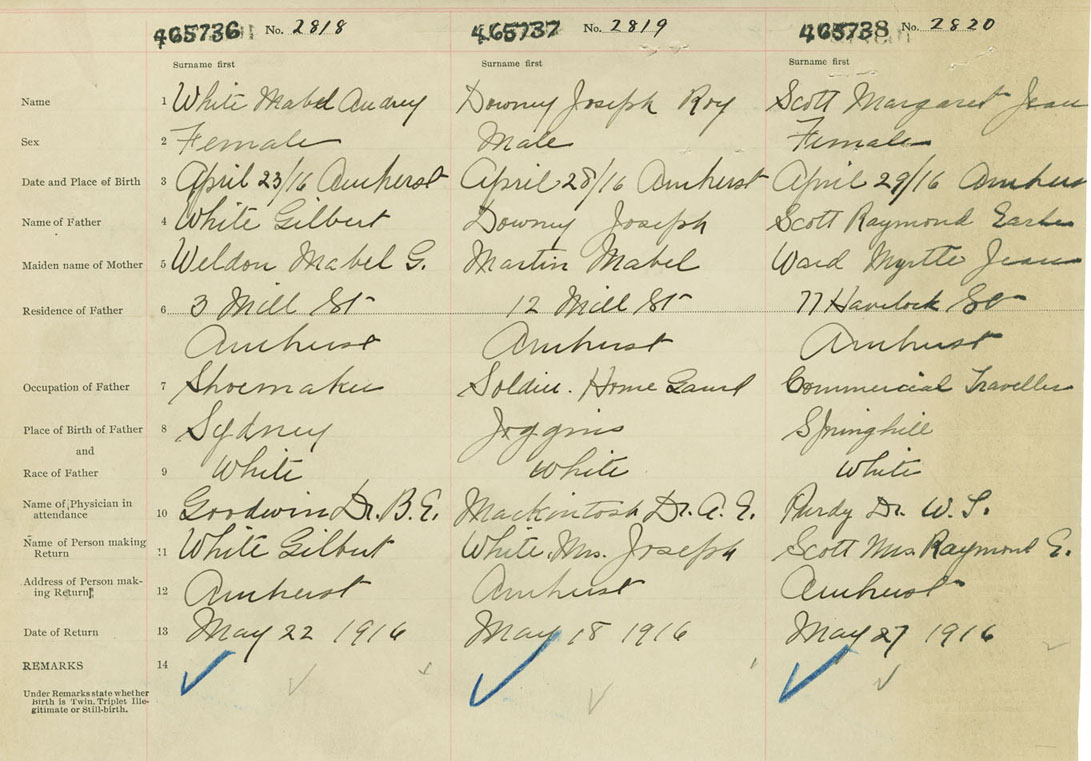 465736 No. 2818 465737 No. 2819 465738 No. 2820
Surname first Surname first Surname first
Name 1 White Mabel Audrey Downey Joseph Roy Scott Margaret Jean
Sex 2 Female Male Female
Date and Place of Birth 3 April 23/16 Amherst April 28/16 Amherst April 29/16 Amhers
Name of Father 4 White Gilbert Downey Joseph Scott Raymond
Maiden name of Mother 5 Weldon Mabel G. Martin Mabel Ward Myrtle Jean
Residence of Father 6 3 Mill St 12 Mill St 77 Havelock St
Amherst Amherst Amherst
Occupation of Father 7 Shoemaker Soldier. Home Gaurd Commercial Traveller
Place of Birth of Father 8 Sydney Joggins Springhill
and
Race of Father 9 White White White
Name of Physician in
attendance 10 Goodwin Dr. B.E. Mackintosh Dr. A.E. Purdy Dr. W.T.
Name of Person making
Return 11 White Gilbert White Mrs. Joseph Scott Mrs Raymond E.
Address of Person mak-
ing Return 12 Amherst Amherst Amherst
Date of Return 13 May 22 1916 May 18 1916 May 27 1916
REMARKS 14
Under Remarks state whether
Birth is Twin, Triplet Ille-
gitimate or Still-birth.